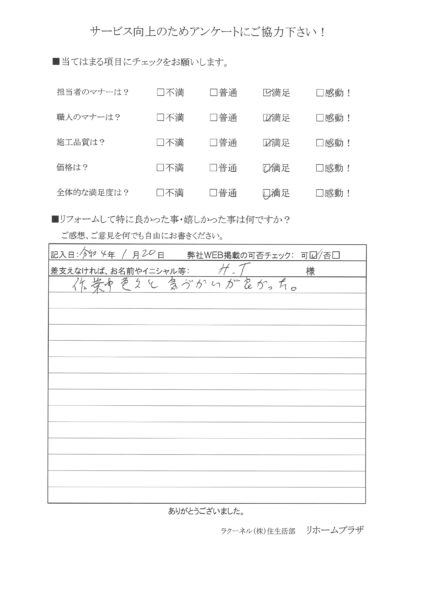 サービス向上のためアンケートにご協力下さい！
■当てはまる項目にチェックをお願いします。
担当者のマナーは？ □不満 □普通 ☑満足 □感動！
職人のマナーは？ □不満 □普通 ☑満足 □感動！
施工品質は？ □不満 □普通 ☑満足 □感動！
価格は？ □不満 □普通 ☑満足 □感動！
全体的な満足度は？ □不満 □普通 ☑満足 □感動！
■リフォームして特に良かった事・嬉しかった事は何ですか？
ご感想、ご意見を何でも自由にお書きください。
記入日：令和4年 1月20日 弊社WEB掲載の可否チェック： 可☑/否□
差支えなければ、お名前やイニシャル等： H.T 様
作業中色々と気づかいが良かった。
ありがとうございました。
ラクーネル（株）住生活部 リホームプラザ